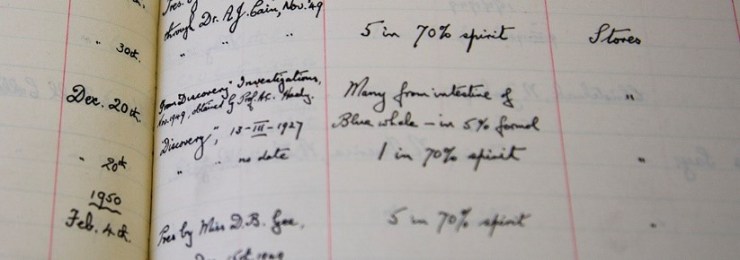 Pres. by
through Dr. A.J. Cain, Nov. '49
" 30th. " " 5 in 70% spirit Stores
Dec. 20th. from Discovery Investigations, Many from intestine of "
Nov. 1949, obtained by Prof. A.C. Hardy. Blue whale – in 5% formol
Discovery, 13-III-1927
" 20th " " no date 1 in 70% spirit "
1950
Feb. 4th. Pres by Miss D.B. Gee, 5 in 70% spirit "